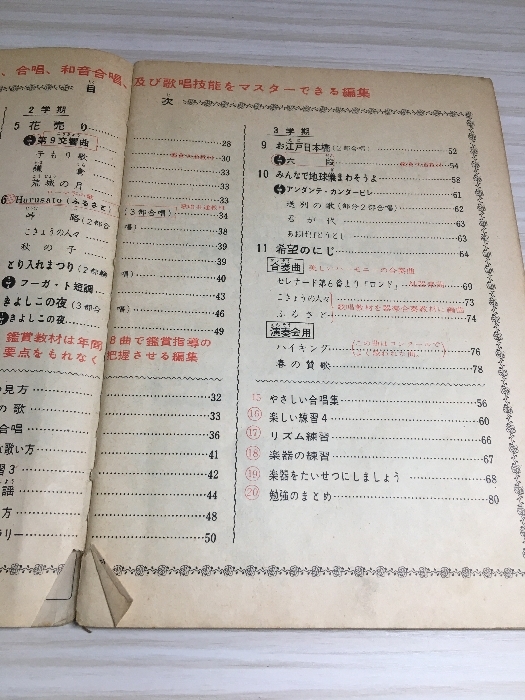 、合唱、和音合唱、及び歌唱技能をマスターできる編集
目
次
2学期
5 花売り………28
第9交響曲………30
子もり歌………33
鎌倉………33
荒城の月………34
6 Hurusato(ふるさと)
吟(2部合
こきょうの人々………39
秋の子………39
とり入れまつり(2部輪唱)………40
フーガ・ト短調………43
きよしこの夜(3部合唱)………46
きよしこの夜………49
鑑賞教材は年間 8曲で鑑賞指導の
要点をもれなく 把握させる編集
の見方………32
の歌………33
合唱………36
な歌い方………41
習3………42
謡………44
方………48
ラリー………50
3学期
9 お江戸日本橋(2部合唱)………52
六段………54
10 みんなで地球儀まわそうよ………58
アンダンテ・カンタービレ………61
送別の歌(部分2部合唱)………62
君が代………63
あおげばとうとし………63
11 希望のにじ………64
合奏曲 美しいハーモニーの合奏曲
セレナード第6番より「ロンド」………69
こきょうの人々………73
ふるさと………74
歌唱教材を器楽合奏教材に編曲
演奏会用
ハイキング………76
春の賛歌………78
15 やさしい合唱集………56
16 楽しい練習4………60
17 リズム練習………66
18 楽器の練習………67
19 楽器をたいせつにしましょう………68
20 勉強のまとめ………80